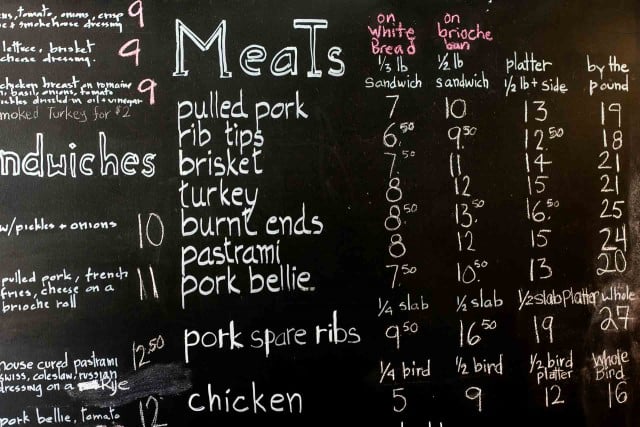 tomato, onions, crisp 9
& smokehouse dressing
lettuce, brisket 9
cheese dressing.
chicken breast on romaine 9
basil, onions, tomato
pickles drizzled in oil + vinegar
smoked Turkey for $2
ndwiches
w/pickles + onions 10
pulled pork, french 11
fries, cheese on a
brioche roll
house cured pastrami 12.50
swiss, coleslaw, russian
dressing on a Rye
pork bellie, tomato 12
Meats
on White Bread on brioche bun
1/3 lb sandwich 1/2 lb sandwich platter 1/2 lb + side by the pound
pulled pork 7 10 13 19
rib tips 6.50 9.50 12.50 18
brisket 7.50 11 14 21
turkey 8 12 15 21
burnt ends 8.50 13.50 16.50 25
pastrami 8 12 15 24
pork bellie 7.50 10.50 13 20
1/4 slab 1/2 slab 1/2 slab Platter whole
pork spare ribs 9.50 16.50 19 27
1/4 bird 1/2 bird 1/2 bird platter Whole Bird
chicken 5 9 12 16